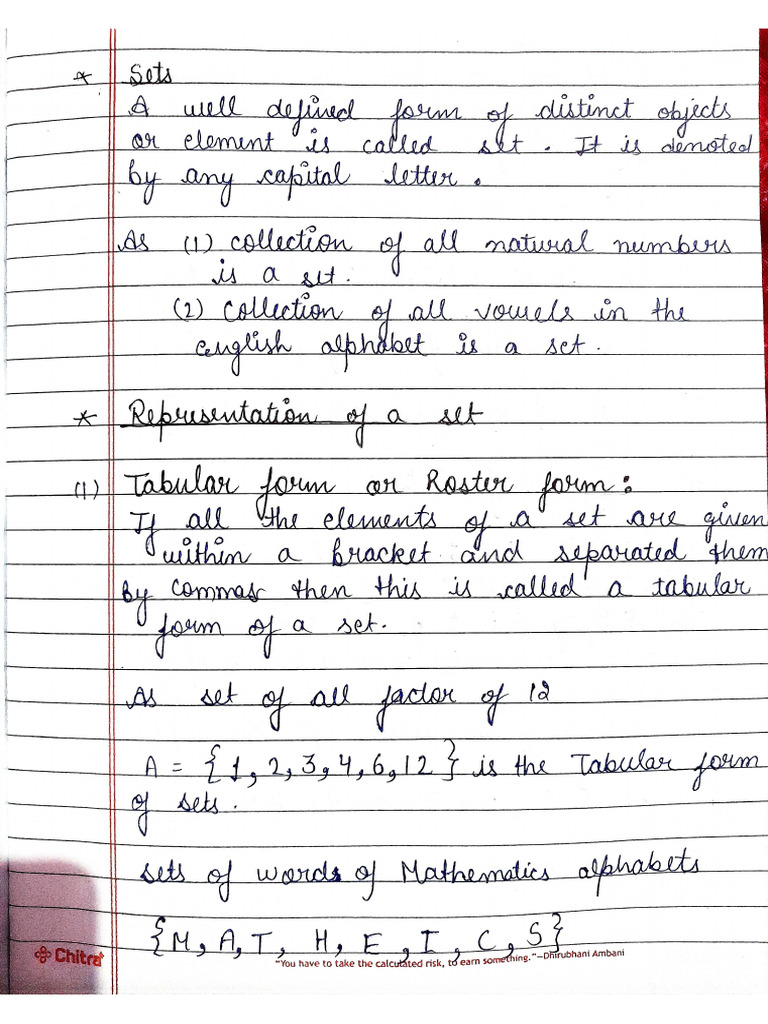 * Sets
A well defined form of distinct objects
or element is called set. It is denoted
by any capital letter.
As (1) collection of all natural numbers
is a set.
(2) collection of all vowels in the
english alphabet is a set.
* Representation of a set
(1) Tabular form or Roster form:
If all the elements of a set are given
within a bracket and separated them
by commas then this is called a tabular
form of a set.
As set of all factor of 12
A = {1, 2, 3, 4, 6, 12} is the Tabular form
of sets.
sets of words of Mathematics alphabets
{M, A, T, H, E, I, C, S}
Chitra
"You have to take the calculated risk, to earn something."–Dhirubhani Ambani